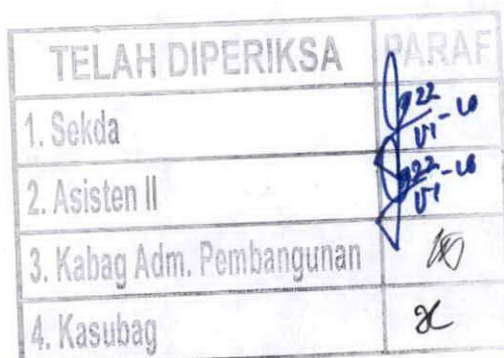 TELAH DIPERIKSA PARAF
1. Sekda 22/VI-20
2. Asisten II 22/VI-20
3. Kabag Adm. Pembangunan
4. Kasubag